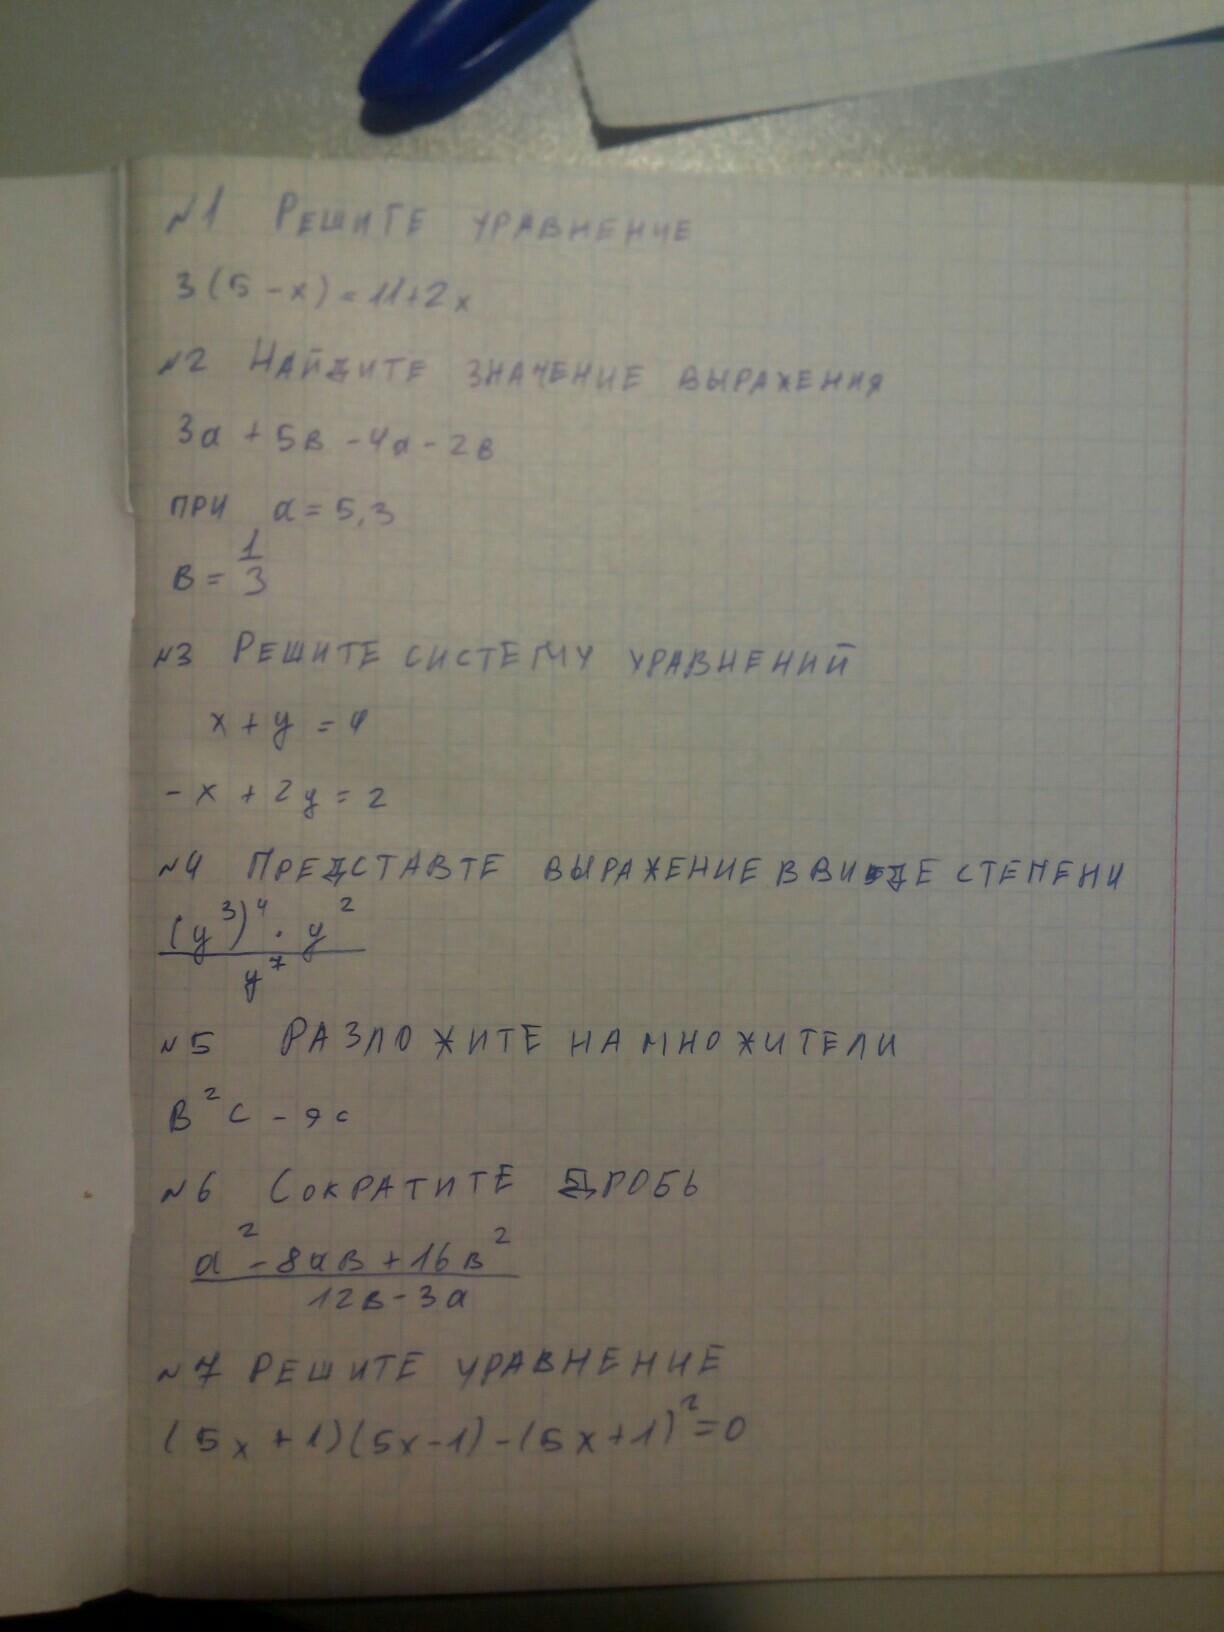 №1 Решите уравнение
3(5-x)=11+2x
№2 Найдите значение выражения
3а+5в-4а-2в
при а=5,3
в=1/3
№3 Решите систему уравнений
x+y=4
-x+2y=2
№4 Представте выражение в виде степени
(y³)⁴·y²
y⁷
№5 Разложите на множители
в²с-9с
№6 Сократите дробь
а²-8ав+16в²
12в-3а
№7 Решите уравнение
(5x+1)(5x-1)-(5x+1)²=0